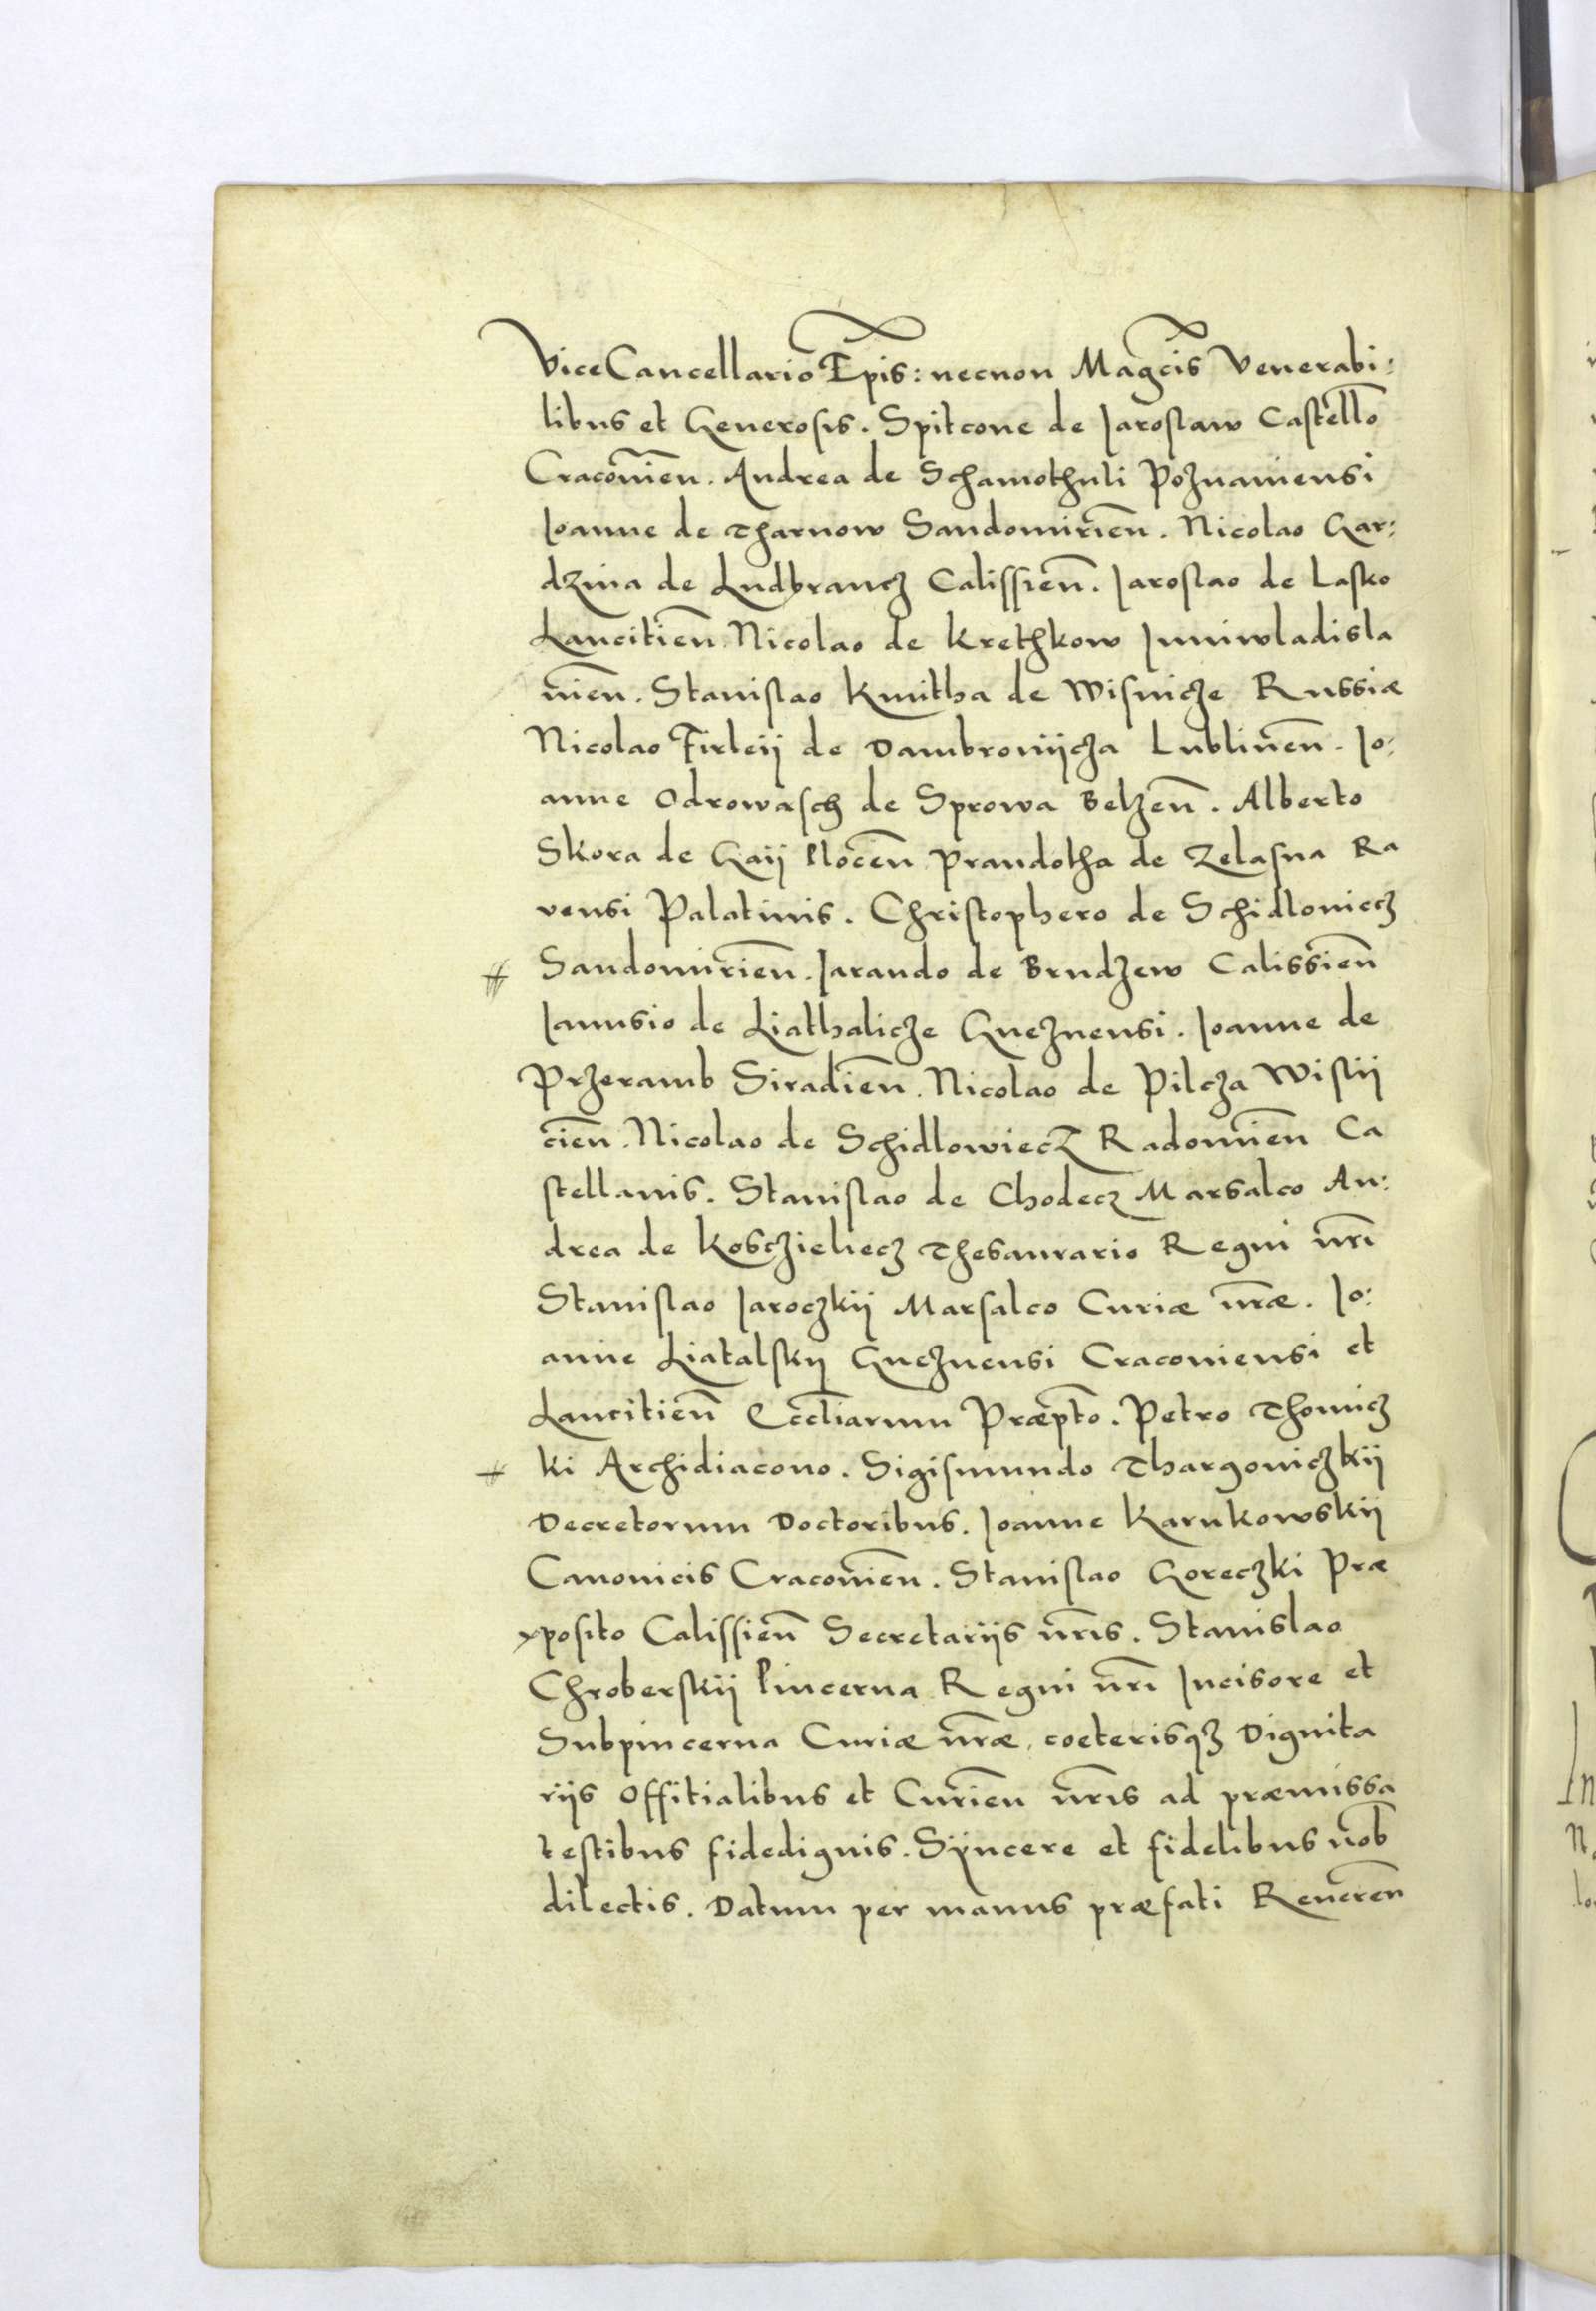 ViceCancellario Ep̃is: necnon Mag̃cis Venerabi:
libus et Generosis. Spitcone de Jaroslaw Castellõ
Cracovieñ. Andrea de Schamothuli Poznaniensi
Joanne de Tharnow Sandomirieñ. Nicolao Gar:
dzina de Ludbrancz Calissieñ. Jaroslao de Lasko
Lancitieñ. Nicolao de Krethkow Juniwladisla
vieñ. Stanislao Kmitha de Wisnicze Russiæ
Nicolao Firleij de Dambrovijcza Lublineñ. Jo:
anne Odrowasch de Sprowa Belzeñ. Alberto
Skora de Gaij Ploceñ Prandotha de Zelasna Ra
vensi Palatinis. Christophero de Schidloviecz
Sandomirieñ. Jarando de Brudzew Calissieñ
Janusio de Liathalicze Gneznensi. Joanne de
Przeramb Siradieñ. Nicolao de Pilcza Wislij
cieñ. Nicolao de Schidlowiecz Radomieñ Ca
stellanis. Stanislao de Chodecz Marsalco An:
drea de Kosczieliecz Thesaurario Regni nr̃i
Stanislao Jaroczkij Marsalco Curiæ nr̃æ. Jo:
anne Liatalskij Gneznensi Cracoviensi et
Lancitieñ Eccl̃iarum Præp̃to. Petro Thomicz
ki Archidiacono. Sigismundo Thargoviczkij
Decretorum Doctoribus. Joanne Karnkowskij
Canonicis Cracovieñ. Stanislao Goreczki Præ
posito Calissieñ Secretariis nr̃is. Stanislao
Chroberskij Pincerna Regni nr̃i Incisore et
Subpincerna Curiæ nr̃æ, coeterisqz Dignita
riis Offitialibus et Curieñ nr̃is ad præmissa
testibus fidedignis. Sÿncere et fidelibus nob̃
dilectis. Datum per manus præfati Revereñ